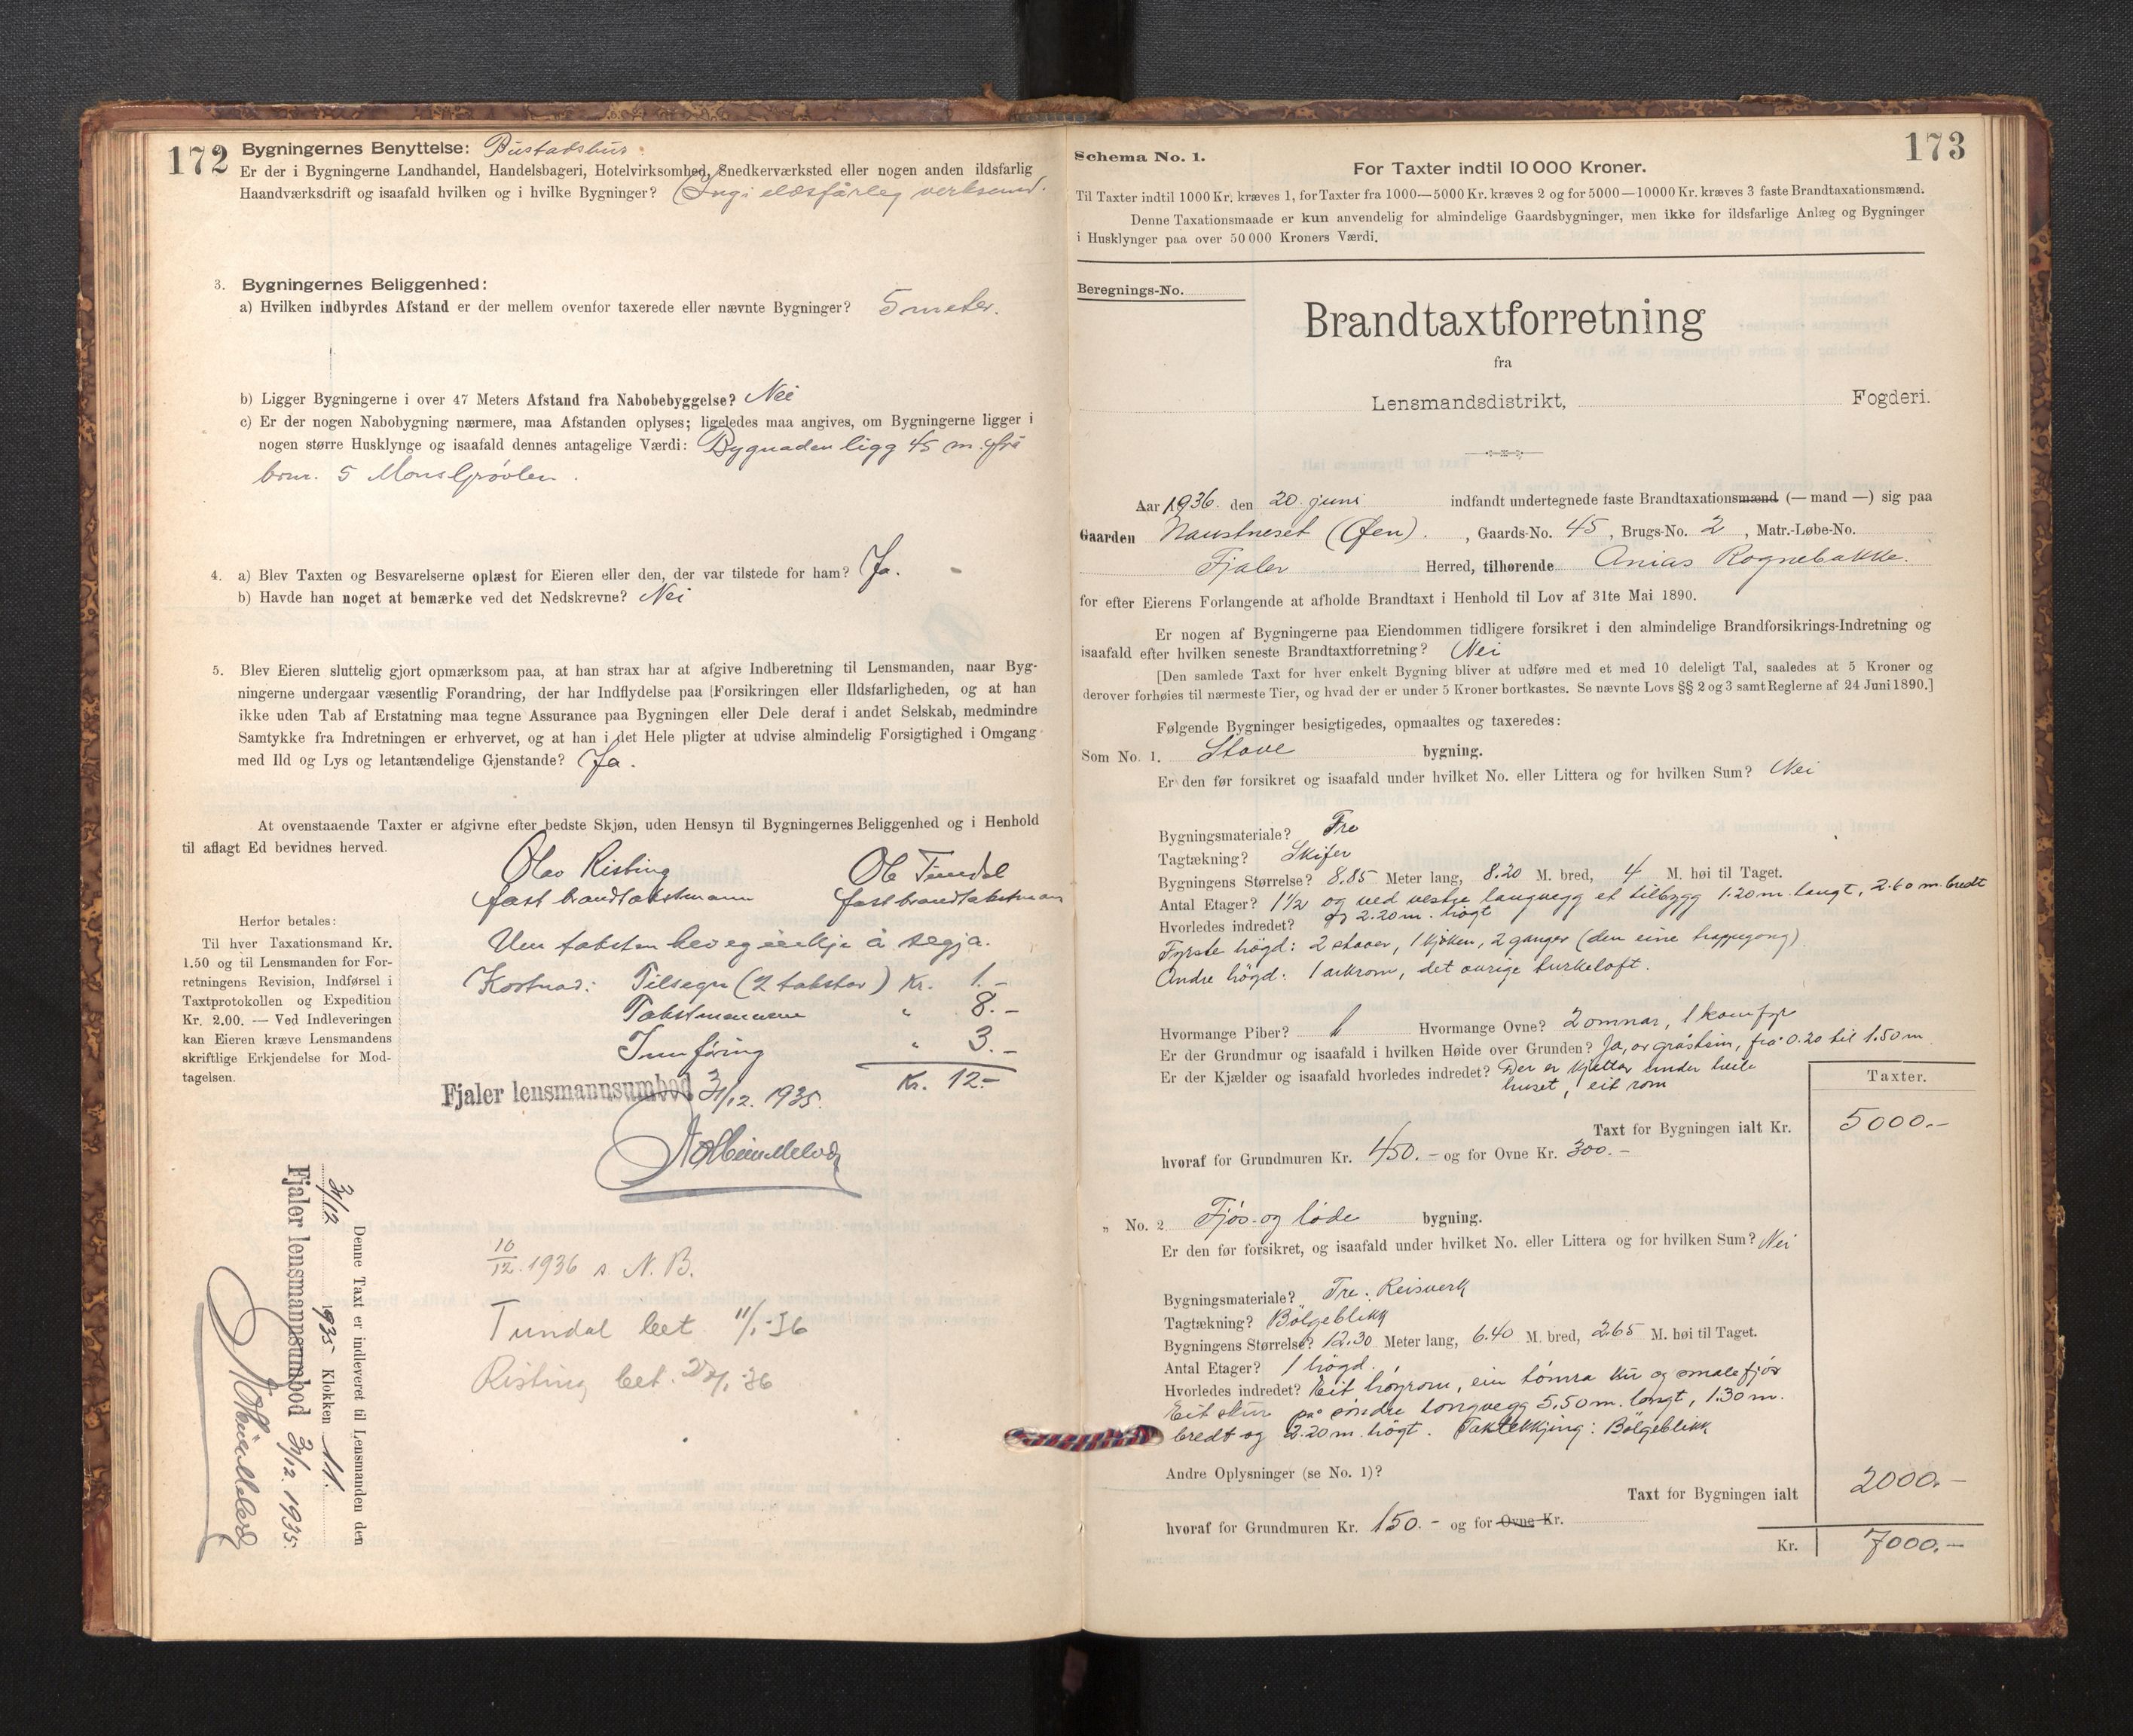 172
Bygningernes Benyttelse: Bustadshus.
Er der i Bygningerne Landhandel, Handelsbageri, Hotelvirksomhed, Snedkerværksted eller nogen anden ildsfarlig
Haandværksdrift og isaafald hvilken og i hvilke Bygninger? Ingi eldsfårleg verksemd.
3. Bygningernes Beliggenhed:
a) Hvilken indbyrdes Afstand er der mellem ovenfor taxerede eller nævnte Bygninger? 5 meter.
b) Ligger Bygningerne i over 47 Meters Afstand fra Nabobebyggelse? Nei
c) Er der nogen Nabobygning nærmere, maa Afstanden oplyses; ligeledes maa angives, om Bygningerne ligger i
nogen større Husklynge og isaafald dennes antagelige Værdi: Bygnaden ligg 45 m. frå
bnr. 5 Mons
4. a) Blev Taxten og Besvarelserne oplæst for Eieren eller den, der var tilstede for ham? Ja.
b) Havde han noget at bemærke ved det Nedskrevne? Nei
5. Blev Eieren sluttelig gjort opmærksom paa, at han strax har at afgive Indberetning til Lensmanden, naar Byg-
ningerne undergaar væsentlig Forandring, der har Indflydelse paa Forsikringen eller Ildsfarligheden, og at han
ikke uden Tab af Erstatning maa tegne Assurance paa Bygningen eller Dele deraf i andet Selskab, medmindre
Samtykke fra Indretningen er erhvervet, og at han i det Hele pligter at udvise almindelig Forsigtighed i Omgang
med Ild og Lys og letantændelige Gjenstande? Ja.
At ovenstaaende Taxter er afgivne efter bedste Skjøn, uden Hensyn til Bygningernes Beliggenhed og i Henhold
til aflagt Ed bevidnes herved.
Olav Risting Ole Tundal
fast brandtakstmann fast brandtakstmann
Herfor betales:
Til hver Taxationsmand Kr.
1.50 og til Lensmanden for For-
retningens Revision, Indførsel i
Taxtprotokollen og Expedition
Kr. 2.00. — Ved Indleveringen
kan Eieren kræve Lensmandens
skriftlige Erkjendelse for Mod-
tagelsen.
Um taksten hev eg ikkje å segja.
Kostnad: Tilsegn (2 takstar) Kr. 1.-
Takstmennene " 8.-
Innføring " 3.-
Kr. 12.-
Fjaler lensmannsumbod 31/12. 1935.
Denne Taxt er indleveret til Lensmanden den
31/12 1935 Klokken 11.
Fjaler lensmannsumbod 31/12. 1935.
10/12. 1936 s. N. B.
Tundal bet 11/1-36
Risting bet. 1-36
173
Schema No. 1.
For Taxter indtil 10 000 Kroner.
Til Taxter indtil 1000 Kr. kræves 1, for Taxter fra 1000—5000 Kr. kræves 2 og for 5000—10000 Kr. kræves 3 faste Brandtaxationsmænd.
Denne Taxationsmaade er kun anvendelig for almindelige Gaardsbygninger, men ikke for ildsfarlige Anlæg og Bygninger
i Husklynger paa over 50 000 Kroners Værdi.
Beregnings-No.
Brandtaxtforretning
fra
Lensmandsdistrikt, Fogderi.
Aar 1936. den 20. juni indfandt undertegnede faste Brandtaxationsmænd (— mand —) sig paa
Gaarden Naustneset (Øen). , Gaards-No. 45, Brugs-No. 2, Matr.-Løbe-No.
Fjaler Herred, tilhørende Anias Rognebakke.
for efter Eierens Forlangende at afholde Brandtaxt i Henhold til Lov af 31te Mai 1890.
Er nogen af Bygningerne paa Eiendommen tidligere forsikret i den almindelige Brandforsikrings-Indretning og
isaafald efter hvilken seneste Brandtaxtforretning? Nei
[Den samlede Taxt for hver enkelt Bygning bliver at udføre med et med 10 deleligt Tal, saaledes at 5 Kroner og
derover forhøies til nærmeste Tier, og hvad der er under 5 Kroner bortkastes. Se nævnte Lovs §§ 2 og 3 samt Reglerne af 24 Juni 1890.]
Følgende Bygninger besigtigedes, opmaaltes og taxeredes:
Som No. 1. Stove bygning.
Er den før forsikret og isaafald under hvilket No. eller Littera og for hvilken Sum? Nei
Bygningsmateriale? Tre
Tagtækning? Skifer
Bygningens Størrelse? 8.85 Meter lang, 8.20 M. bred, 4 M. høi til Taget.
Antal Etager? 1½ og ved vestre langvegg et tilbygg 1.20 m. langt, 2.60 m. bredt
Hvorledes indredet? og 2.20 m. høgt
Fyrste høgd: 2 stover, 1 kjøken, 2 ganger (den eine trappegang)
Andre høgd: 1 arkrom, det øvrige turkeloft.
Hvormange Piber? 1 Hvormange Ovne? 2 omnar, 1 komfyr
Er der Grundmur og isaafald i hvilken Høide over Grunden? Ja, av gråstein, frå 0.20 til 1.50 m
Er der Kjælder og isaafald hvorledes indredet? Der er kjellar under heile
huset, eit rom
Taxter.
Taxt for Bygningen ialt Kr. 5000.-
hvoraf for Grundmuren Kr. 450.- og for Ovne Kr. 300.-
„ No. 2 Fjøs- og løde bygning.
Er den før forsikret, og isaafald under hvilket No. eller Littera og for hvilken Sum? Nei
Bygningsmateriale? Tre: Reisverk
Tagtækning? Bölgeblikk
Bygningens Størrelse? 12.30 Meter lang, 6.40 M. bred, 2.65 M. høi til Taget.
Antal Etager? 1 högd.
Hvorledes indredet? Eit høyrom, ein tømra ku og smalefjøs
Eit skur på søndre langvegg 5.50 m. langt, 1.30 m.
bredt og 2.20 m. högt. Taktekkjing: Bölgeblikk
Andre Oplysninger (se No. 1)?
Taxt for Bygningen ialt 2000.-
hvoraf for Grundmuren Kr. 150.- og for Ovne Kr.
Kr. 7000.-